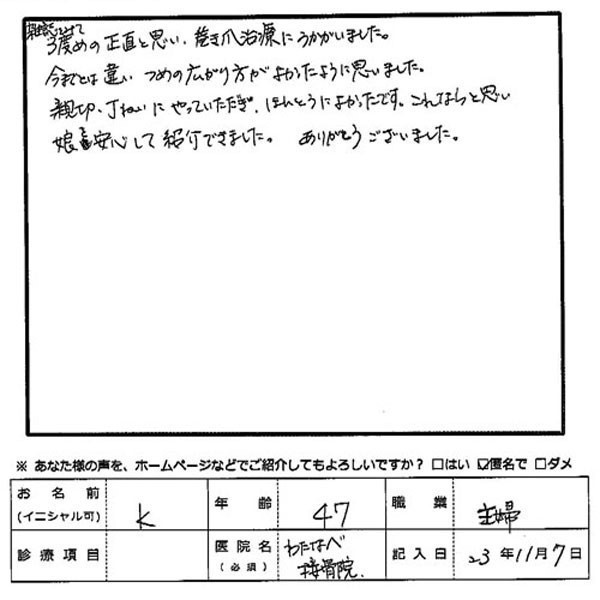 3度めの正直と思い、巻き爪治療にうかがいました。
今までとは違い つめの広がり方がよかったように思いました。
親切、丁ねいにやっていただぎ、ほんとうによかったです。これならと思い
娘も安心して紹介できました。 ありがとうございました。
※ あなた様の声を、ホームページなどでご紹介してもよろしいですか？ □はい ☑匿名で □ダメ
お名前 (イニシャル可) K 年齢 47 職業 主婦
診療項目 医院名 (必須) わたなべ接骨院. 記入日 23年11月7日